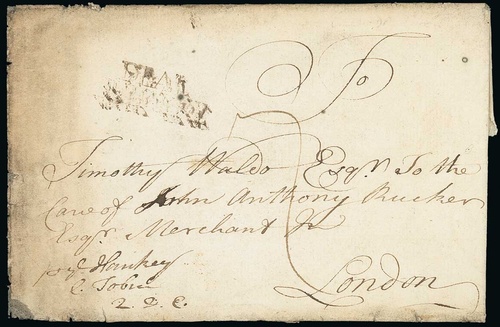 DEAL
To
Timothy Waldo Esqr. To the
Care of John Anthony Rucker
Esqr. Merchant In
London
Hankey
Q. D. C.